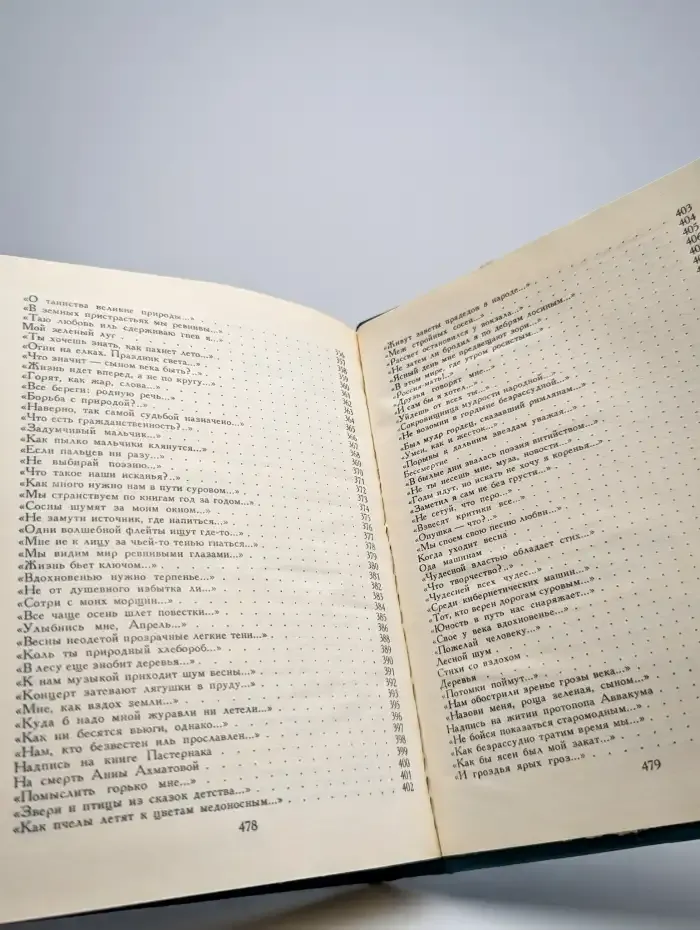 «О таинства великие природы...»
«В земных пристрастьях мы ревнивы...»
«Таю любовь иль сдерживаю гнев я...»
Мой зеленый луг
«Ты хочешь знать, как пахнет лето...» 356
«Огни на елках. Праздник света...» 357
«Что значит — сыном века быть?..» 358
«Жизнь идет вперед, а не по кругу...» 359
«Горят, как жар, слова...» 360
«Все береги: родную речь...» 361
«Борьба с природой?..» 362
«Наверно, так самой судьбой назначено...» 363
«Что есть гражданственность?..» 364
«Задумчивый мальчик...» 365
«Как пылко мальчики клянутся...» 366
«Если пальцев ни разу...» 367
«Не выбирай поэзию...» 368
«Что такое наши исканья?..» 369
«Как много нужно нам в пути суровом...» 370
«Мы странствуем по книгам год за годом...» 371
«Сосны шумят за моим окном...» 372
«Не замути источник, где напиться...» 373
«Одни волшебной флейты ищут где-то...» 374
«Мне не к лицу за чьей-то тенью гнаться...» 375
«Мы видим мир ревнивыми глазами...» 376
«Жизнь бьет ключом...» 377
«Вдохновенью нужно терпенье...» 378
«Не от душевного избытка ли...» 379
«Сотри с моих морщин...» 380
«Все чаще осень шлет повестки...» 381
«Улыбнись мне, Апрель...» 383
«Весны неодетой прозрачные легкие тени...» 384
«Коль ты природный хлебороб...» 385
«В лесу еще знобит деревья...» 386
«К нам музыкой приходит шум весны...» 388
«Концерт затевают лягушки в пруду...» 389
«Мне, как вздох земли...» 390
«Куда б надо мной журавли ни летели...» 391
«Как ни бесятся вьюги, однако...» 392
«Нам, кто безвестен иль прославлен...» 393
Надпись на книге Пастернака 395
На смерть Анны Ахматовой 396
«Помыслить горько мне...» 397
«Звери и птицы из сказок детства...» 398
«Как пчелы летят к цветам медоносным...» 399
400
401
402
478
«Живут заветы прадедов в народе...» 403
«Меж стройных сосен...» 404
«Рассвет остановился у вокзала...» 405
«Не затем ли бродил я по дебрям лосиным...» 406
«Ясный день мне предвещают зори...»
«В этом мире, где утром росистым...»
«Россия-мать!..»
«Друзья говорят мне...»
«И сам бы я хотел...»
«Уйдешь от всех ты...»
«Сокровищница мудрости народной...»
«Не возомни в гордыне безрассудной...»
«Был мудр гордец, сказавший римлянам...»
«Умен, как и жесток...»
«Порывы к дальним звездам уважая...»
Бессмертие
«В былые дни звалась поэзия витийством...»
«Не ты несешь мне, муза, новости...»
«Годы идут, но искать не хочу я коренья...»
«Заметил я сам не без грусти...»
«Не сетуй, что перо...»
«Взвесят критики все...»
«Опушка — что?..»
«Мы споем свою песню любви...»
Когда уходит весна
Ода машинам
«Чудесной властью обладает стих...»
«Что творчество?..»
«Чудесней всех чудес...»
«Среди кибернетических машин...»
«Тот, кто верен дорогам суровым...»
«Юность в путь нас снаряжает...»
«Свое у века вдохновенье...»
«Пожелай человеку...»
Лесной шум
Стихи со вздохом
Деревья
«Потомки поймут...»
«Нам обострили зренье грозы века...»
«Назови меня, роща зеленая, сыном...»
Надпись на житии протопопа Аввакума
«Не бойся показаться старомодным...»
«Как безрассудно тратим время мы...»
«Как бы ясен был мой закат...»
«И гроздья ярых гроз...»
479